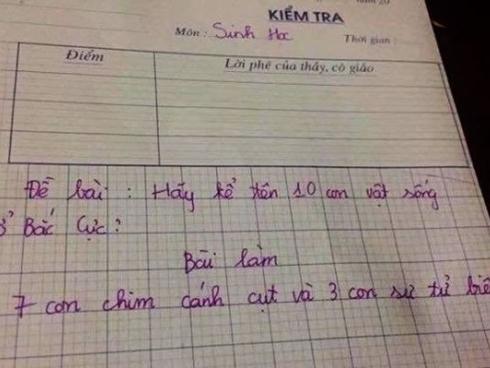 KIỂM TRA
Môn : Sinh Học
Thời gian
Điểm
Lời phê của thầy, cô giáo
Đề bài : Hãy kể tên 10 con vật sống
ở Bắc Cực ?
Bài làm
7 con chim cánh cụt và 3 con sư tử